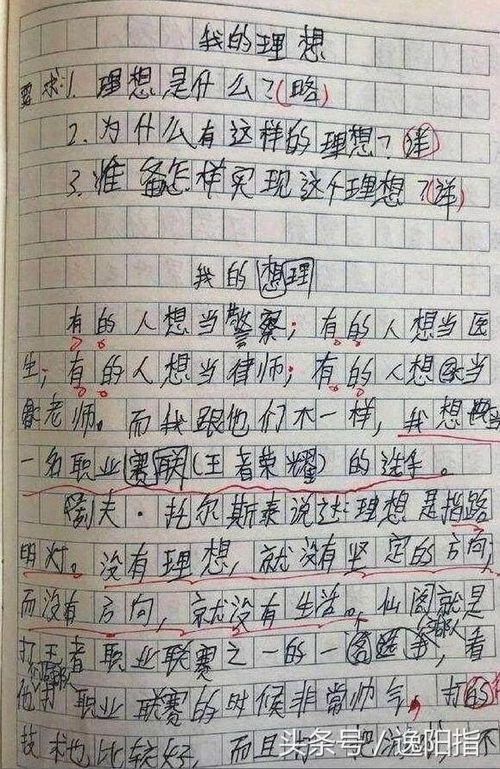 我的理想
要求:1.理想是什么?(略)
2.为什么有这样的理想?(详)
3.准备怎样实现这个理想?(详)
我的想理
有的人想当警察;有的人想当医
生;有的人想当律师;有的人想当
老师。而我跟他们不一样,我想当
一名职业赛联(王者荣耀)的选手。
列夫·托尔斯泰说过:理想是指路
明灯。没有理想,就没有坚定的方向,
而没有方向,就没有生活。仙阁就是
打王者职业联赛之一的一 选手,看
他打职业联赛的时候非常帅气,打的
技术也比较好,而且 不
头条号/逸阳指